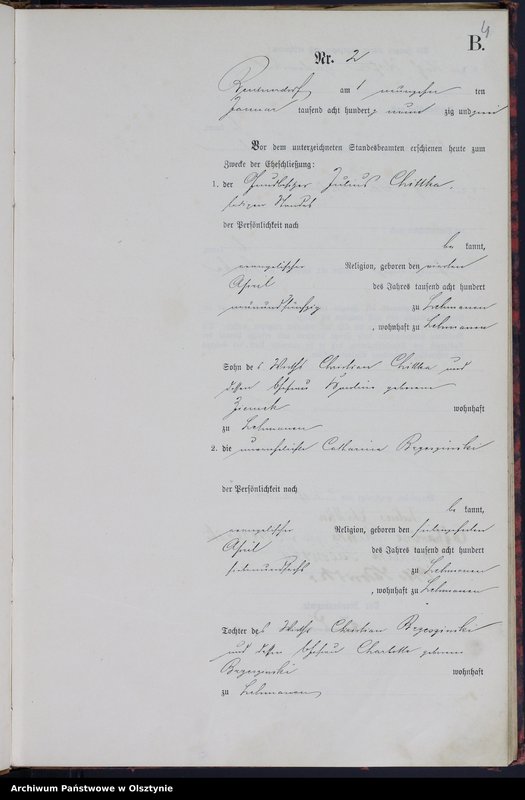 4
B.
Nr. 2
am neunzehn ten
Januar tausend acht hundert neun zig und zwei
Vor dem unterzeichneten Standesbeamten erschienen heute zum
Zwecke der Eheschließung:
1. der Julius Chittka,
ledigen Standes
der Persönlichkeit nach
be kannt,
evangelischer Religion, geboren den vierten
April des Jahres tausend acht hundert
neunundfünfzig zu Lehmanen
, wohnhaft zu Lehmanen
Sohn des Wirths Christian Chittka und
dessen Ehefrau geborene
wohnhaft
zu Lehmanen
2. die unverehelichte Catharine
der Persönlichkeit nach
be kannt,
evangelischer Religion, geboren den siebzehnten
April des Jahres tausend acht hundert
siebenundsechszig zu Lehmanen
, wohnhaft zu Lehmanen
Tochter des Wirths Christian
und dessen Ehefrau Charlotte geborene
wohnhaft
zu Lehmanen
Archiwum Państwowe w Olsztynie